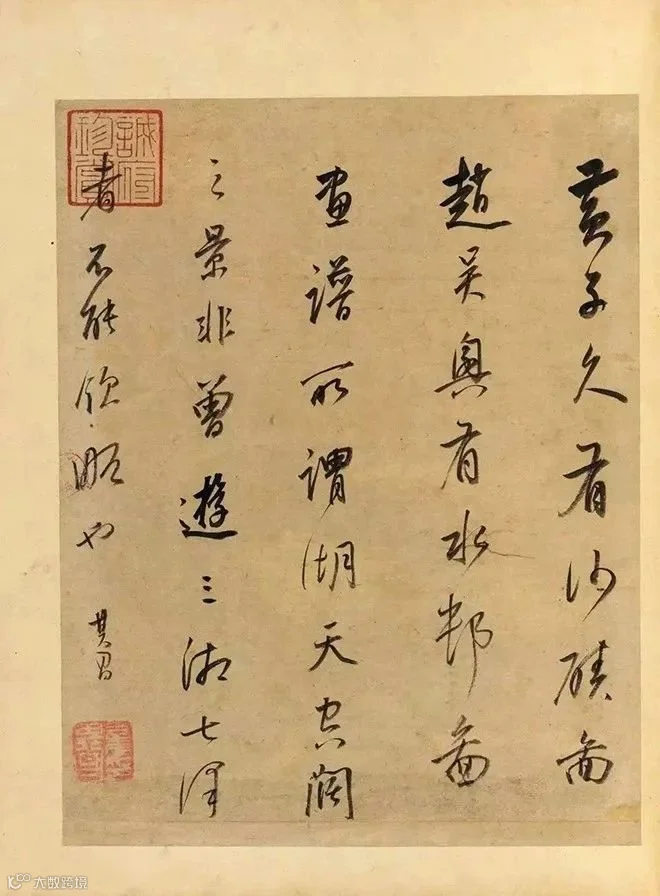 黃子久有沙磧啚
趙吳興有水邨啚
畫譜所謂湖天空闊
之景非曾遊三湘七澤
者不能領略也
其昌
大数跨境